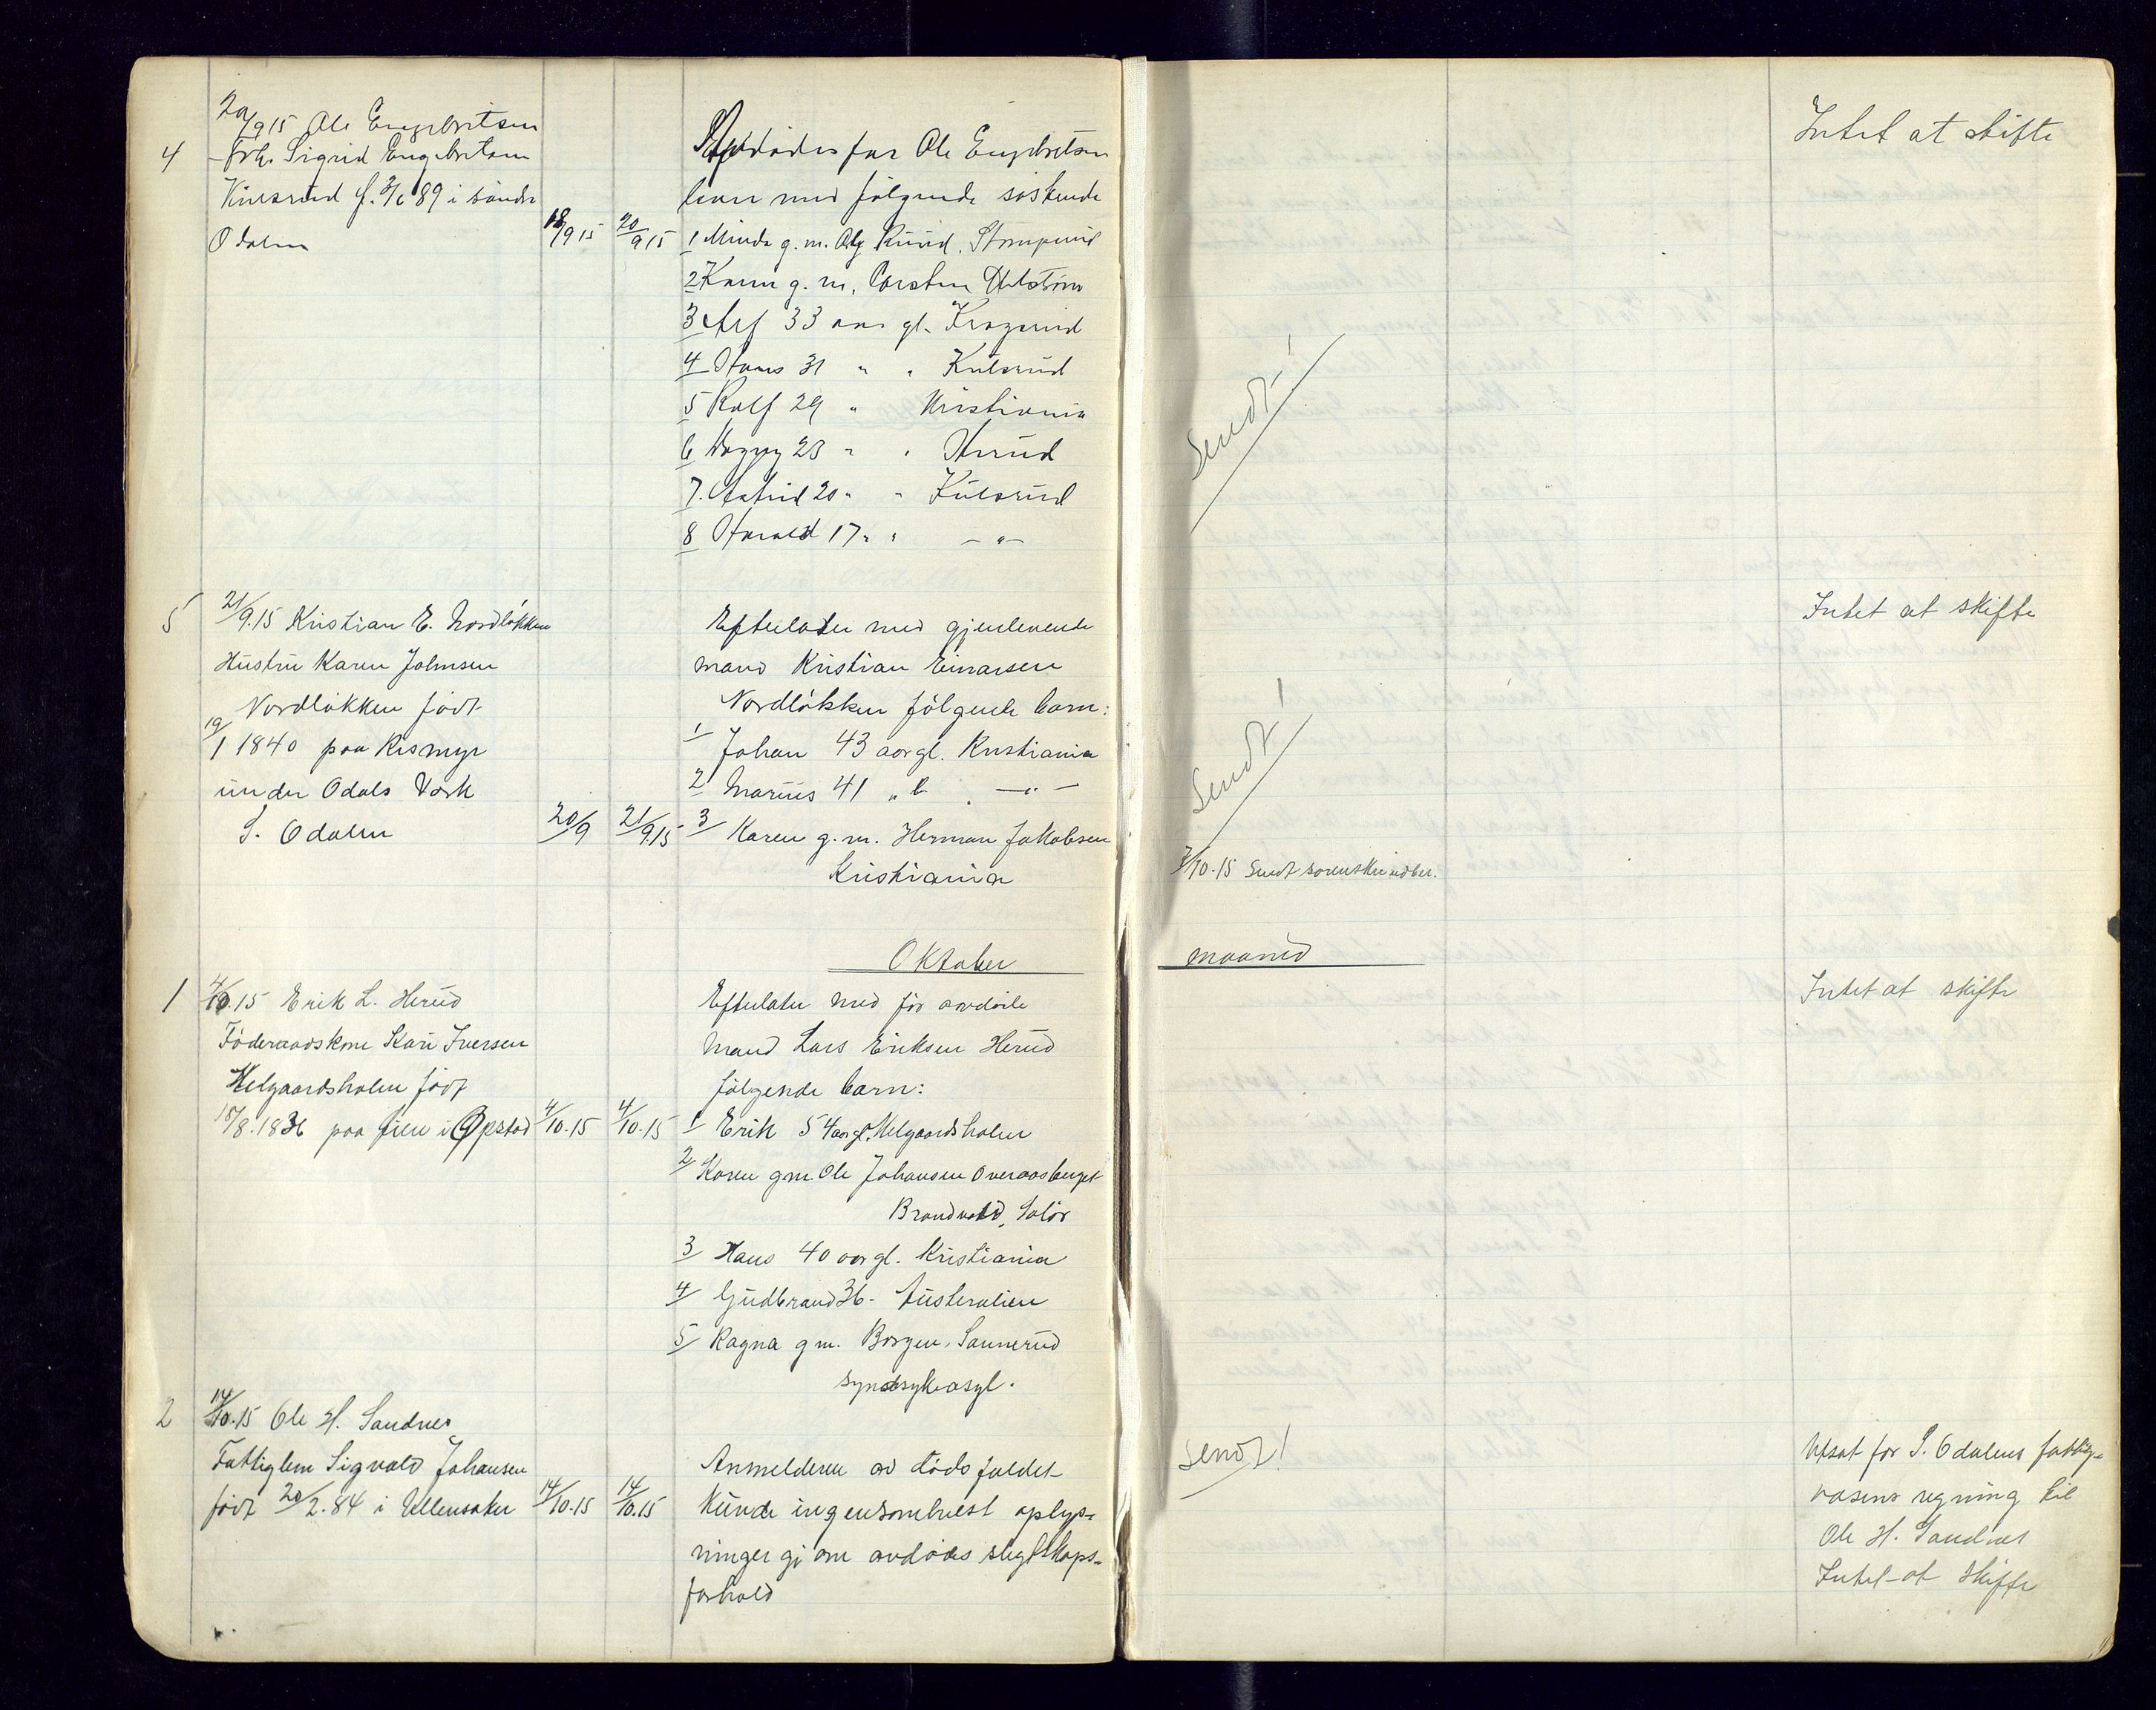 4
20/9 15 Ole Engebretsen
Frk. Sigrid Engebretsen
Kulsrud f. 3/6 89 i söndre
Odalen
18/9 15
20/9 15
far Ole Engebretsen
lever med fölgende söskende
1 Minda g. m. Ruud,
2 Karen g. m. Carsten
3 Alf 33 aar gl.
4 Hans 31 " " Kulsrud
5 Rolf 29 " Kristiania
6 23 " " Herud
7. Astrid 20 " " Kulsrud
8 Harald 17 " " - " -
Sendt!
Intet at skifte
5
21/9.15 Kristian E. Nordlökken
Hustru Karen Johnsen
Nordlökken födt
19/1 1840 paa Rismyr
under Odals Værk
S. Odalen
20/9
21/9.15
Efterlater med gjenlevende
mand Kristian Einarsen
Nordlökken fölgende barn:
1/ Johan 43 aar gl. Kristiania
2/ Marius 41 " - " -
3/ Karen g. m. Herman Jakobsen
Kristiania
Sendt!
7/10-15 Sendt sorenskriverber.
Intet at skifte
Oktober maaned
1
4/10.15 Erik L. Herud
Föderaadskone Kari Iversen
Helgaardsholen födt
18/8.1836 paa i Opstad
4/10.15
4/10.15
Efterlater med för avdöde
mand Lars Eriksen Herud
fölgende barn:
1/ Erik 54 aar gl. Helgaardsholen
2/ Karen gm. Ole Johansen Overaasberget
Brandvold, Solör
3/ Hans 40 aar gl. Kristiania
4/ Gudbrand 36 - Australien
5/ Ragna gm. Borgen, Sannerud
syndssykeasyl.
Intet at skifte
2
14/10.15 Ole H. Sandnes
Fattiglem Sigvald Johansen
födt 20/2.84 i Ullensaker
14/10.15
14/10.15
Anmelderen av dödsfaldet
kunde ingensomhelst oplys=
ninger gi om avdödes slegtskaps=
forhold
Sendt!
Utsat for S. Odalens fattig=
væsens regning til
Ole H. Sandnes
Intet at skifte